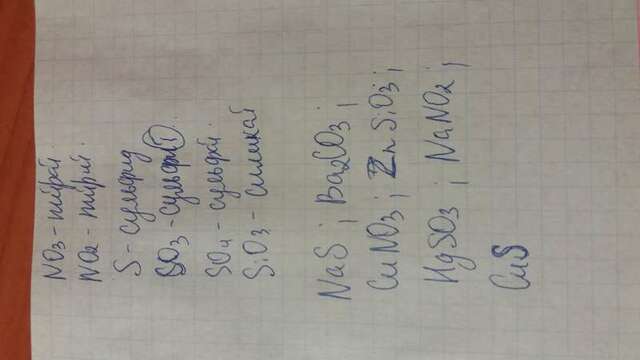 NO3 - нитрат.
NO2 - нитрит.
S - сульфид
SO3 - сульфит.
SO4 - сульфат.
SiO3 - силикат
NaS ; Ba2CO3 ;
CuNO3 ; ZnSiO3 ;
HgSO3 ; NaNO2 ;
CuS